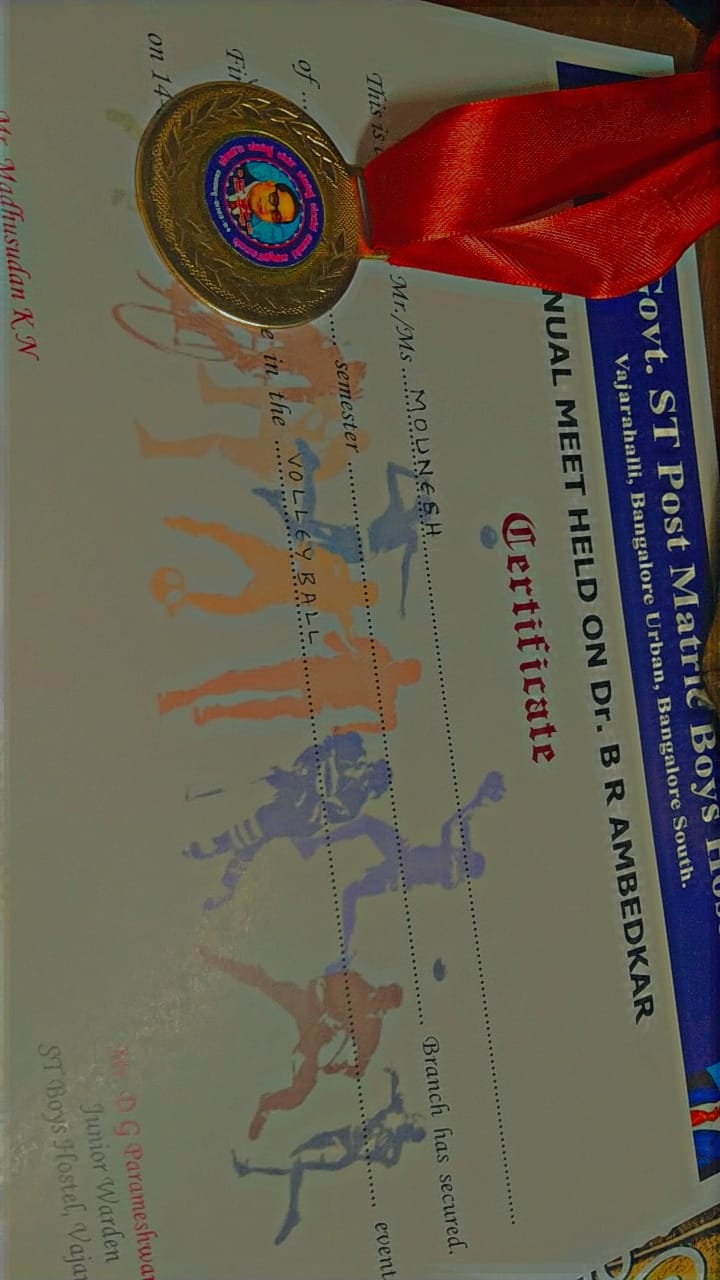 Govt. ST Post Matric Boys
Vajarahalli, Bangalore Urban, Bangalore South.
NUAL MEET HELD ON Dr. B R AMBEDKAR
Certificate
This is Mr./Ms ....MOUNESH
of ... semester Branch has secured.
Fir e in the VOLLEYBALL event
on 14
Mr. Madhusudan K N
Mr. D G Parameshwar
Junior Warden
ST Boys Hostel, Vajar